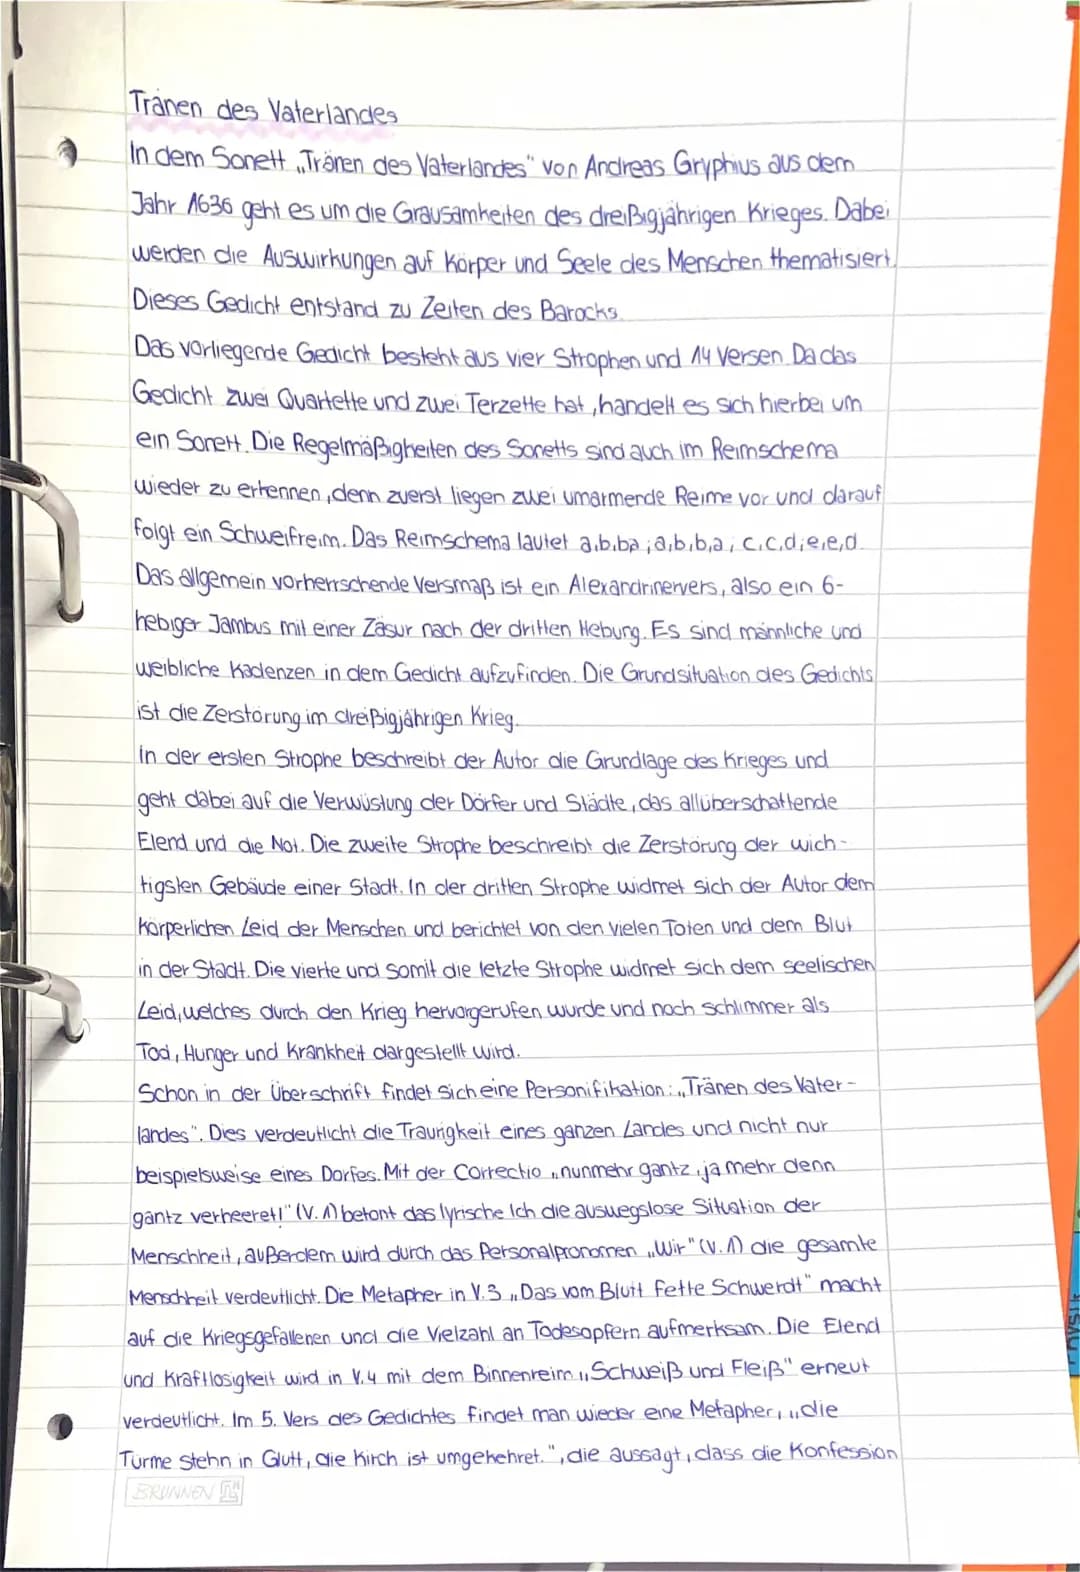 Tränen des Vaterlandes
In dem Sonett „Tränen des Vaterlandes" von Andreas Gryphius aus dem
Jahr 1636 geht es um die Grausamkeiten des dreißigjährigen Krieges. Dabei
werden die Auswirkungen auf Körper und Seele des Menschen thematisiert.
Dieses Gedicht entstand zu Zeiten des Barocks.
Das vorliegende Gedicht besteht aus vier Strophen und 14 Versen. Da das
Gedicht zwei Quartette und zwei Terzette hat, handelt es sich hierbei um
ein Sonett. Die Regelmäßigkeiten des Sonetts sind auch im Reimschema
wieder zu erkennen, denn zuerst liegen zwei umarmende Reime vor und darauf
folgt ein Schweifreim. Das Reimschema lautet a,b,b,a; a,b,b,a; c,c,d; e,e,d.
Das allgemein vorherrschende Versmaß ist ein Alexandrinervers, also ein 6-
hebiger Jambus mit einer Zäsur nach der dritten Hebung. Es sind männliche und
weibliche Kadenzen in dem Gedicht aufzufinden. Die Grundsituation des Gedichts
ist die Zerstörung im dreißigjährigen Krieg.
In der ersten Strophe beschreibt der Autor die Grundlage des Krieges und
geht dabei auf die Verwüstung der Dörfer und Städte, das allüberschattende
Elend und die Not. Die zweite Strophe beschreibt die Zerstörung der wich-
tigsten Gebäude einer Stadt. In der dritten Strophe widmet sich der Autor dem
körperlichen Leid der Menschen und berichtet von den vielen Toten und dem Blut
in der Stadt. Die vierte und somit die letzte Strophe widmet sich dem seelischen
Leid, welches durch den Krieg hervorgerufen wurde und noch schlimmer als
Tod, Hunger und Krankheit dargestellt wird.
Schon in der Überschrift findet sich eine Personifikation: „Tränen des Vater-
landes". Dies verdeutlicht die Traurigkeit eines ganzen Landes und nicht nur
beispielsweise eines Dorfes. Mit der Correctio „nunmehr gantz, ja mehr denn
gantz verheeret!" (V. 1) betont das lyrische Ich die auswegslose Situation der
Menschheit, außerdem wird durch das Personalpronomen „Wir" (V. 1) die gesamte
Menschheit verdeutlicht. Die Metapher in V.3 „Das vom Blutt fette Schwerdt" macht
auf die Kriegsgefallenen und die Vielzahl an Todesopfern aufmerksam. Die Elend
und Kraftlosigkeit wird in V.4 mit dem Binnenreim „Schweiß und Fleiß" erneut
verdeutlicht. Im 5. Vers des Gedichtes findet man wieder eine Metapher, „die
Türme stehn in Glutt, die Kirch ist umgekehret.", die aussagt, dass die Konfession
BRUNNEN